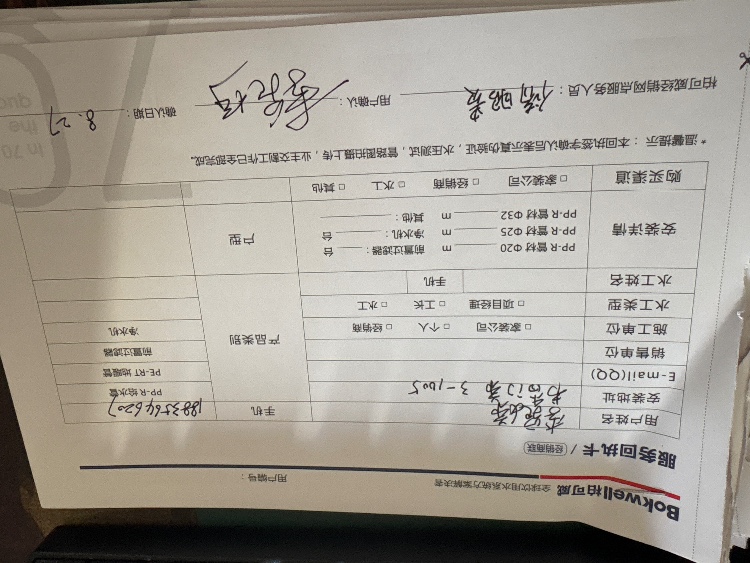 Bokwell柏可威 全球饮用水系统方案解决者
用户编号：
服务回执卡 / 经销商联
用户姓名 手机
安装地址 3-1005 PP-R 给水管
E-mail(QQ) PE-RT 地暖管
销售单位 前置过滤器
施工单位 □ 家装公司 □ 个人 □ 经销商 产品类别 净水机
水工类型 □ 项目经理 □ 工长 □ 水工
水工姓名 手机
安装详情 PP-R 管材 Φ20 m 前置过滤器： 台 户型
PP-R 管材 Φ25 m 净水机： 台
PP-R 管材 Φ32 m 其他：
购买渠道 □ 家装公司 □ 经销商 □ 水工 □ 其他
*温馨提示：本回执签字确认后表示真伪验证，水压测试，管路图拍摄上传，业主交割工作已全部完成。
柏可威经销网点服务人员： 用户确认： 确认日期： 8.27
In 70
the
quo